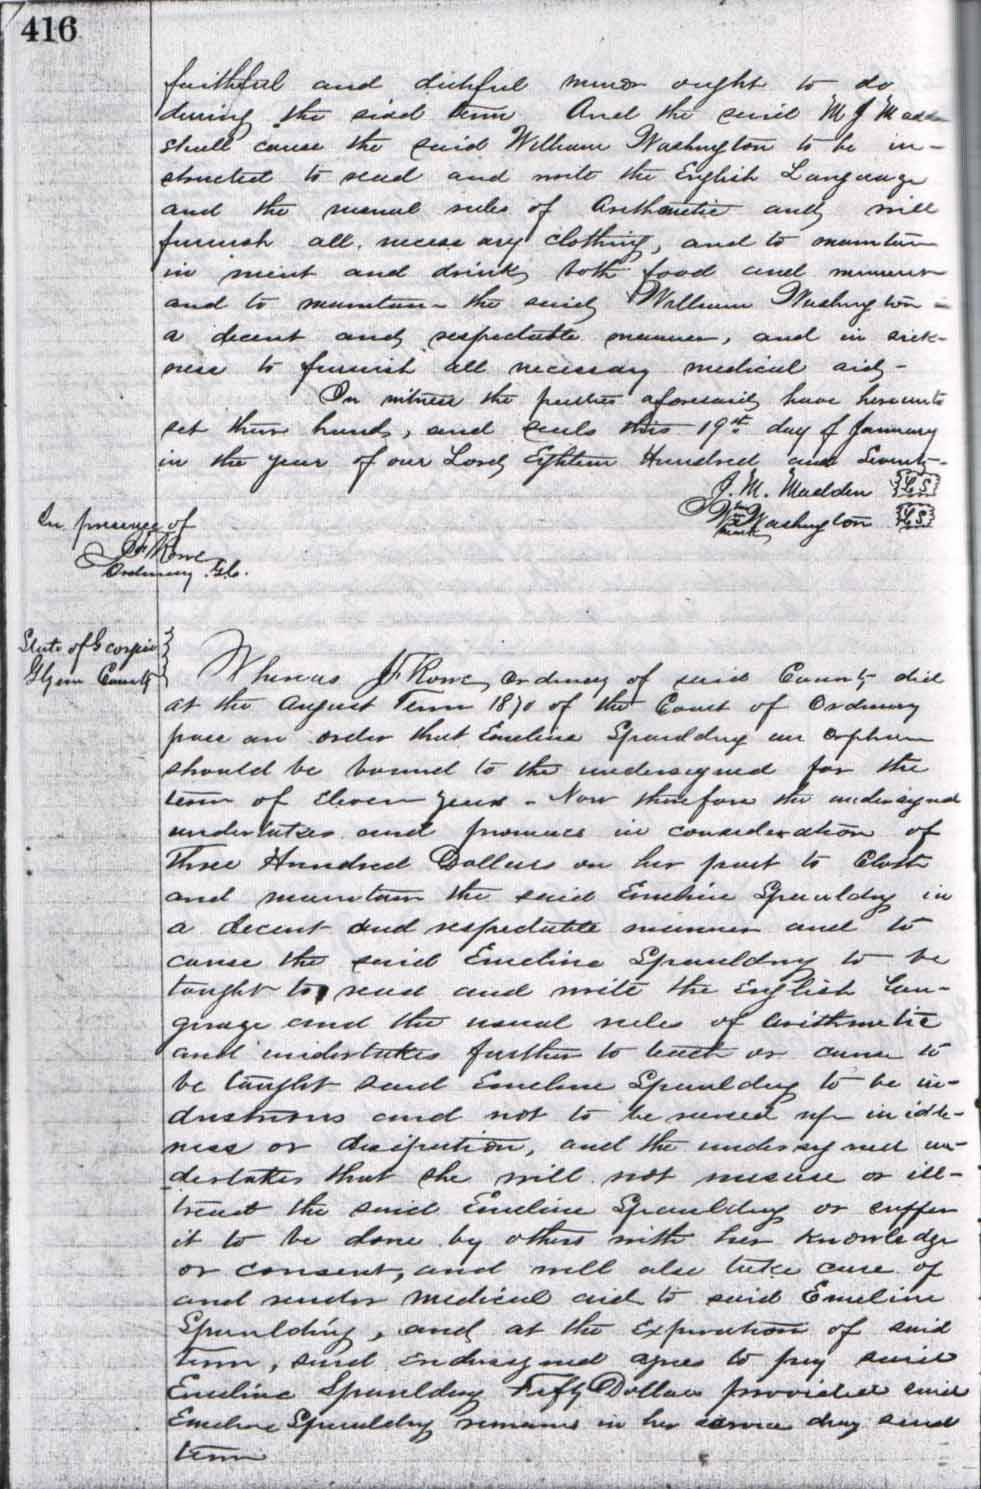 416
faithful and dutiful minor ought to do
during the said term. And the said M J Madden
shall cause the said William Washington to be in-
structed to read and write the English Language
and the usual rules of Arithmetic and will
furnish all necessary clothing, and to maintain
in meat and drink, both food and
and to maintain the said William Washington
a decent and respectable manner, and in sick-
ness to furnish all necessary medical aid-
In witness the parties aforesaid have hereunto
set their hands, and seals this 19th day of January
in the year of our Lord Eighteen Hundred and Seventy-
J. M. Madden LS
Wm Washington LS
his mark
In presence of
J F Rowe
Ordinary G.C.
State of Georgia
Glynn County
Whereas J F Rowe, Ordinary of said County did
at the August Term 1870 of the Court of Ordinary
pass an order that Emeline Spaulding an orphan
should be bound to the undersigned for the
term of eleven years - Now therefore the undersigned
undertakes and promises in consideration of
Three Hundred Dollars on her part to Cloth
and maintain the said Emeline Spaulding in
a decent and respectable manner and to
cause the said Emeline Spaulding to be
taught to read and write the English Lan-
guage and the usual rules of Arithmetic
and undertakes further to teach or cause to
be taught said Emeline Spaulding to be in-
dustrious and not to be raised up in idle-
ness or disipation, and the undersigned un-
dertakes that she will not misuse or ill-
treat the said Emeline Spaulding or suffer
it to be done by others with her knowledge
or consent, and will also take care of
and render medical aid to said Emeline
Spaulding, and at the expiration of said
term, said undersigned agrees to pay said
Emeline Spaulding Fifty Dollars provided said
Emeline Spaulding remains in her service during said
term